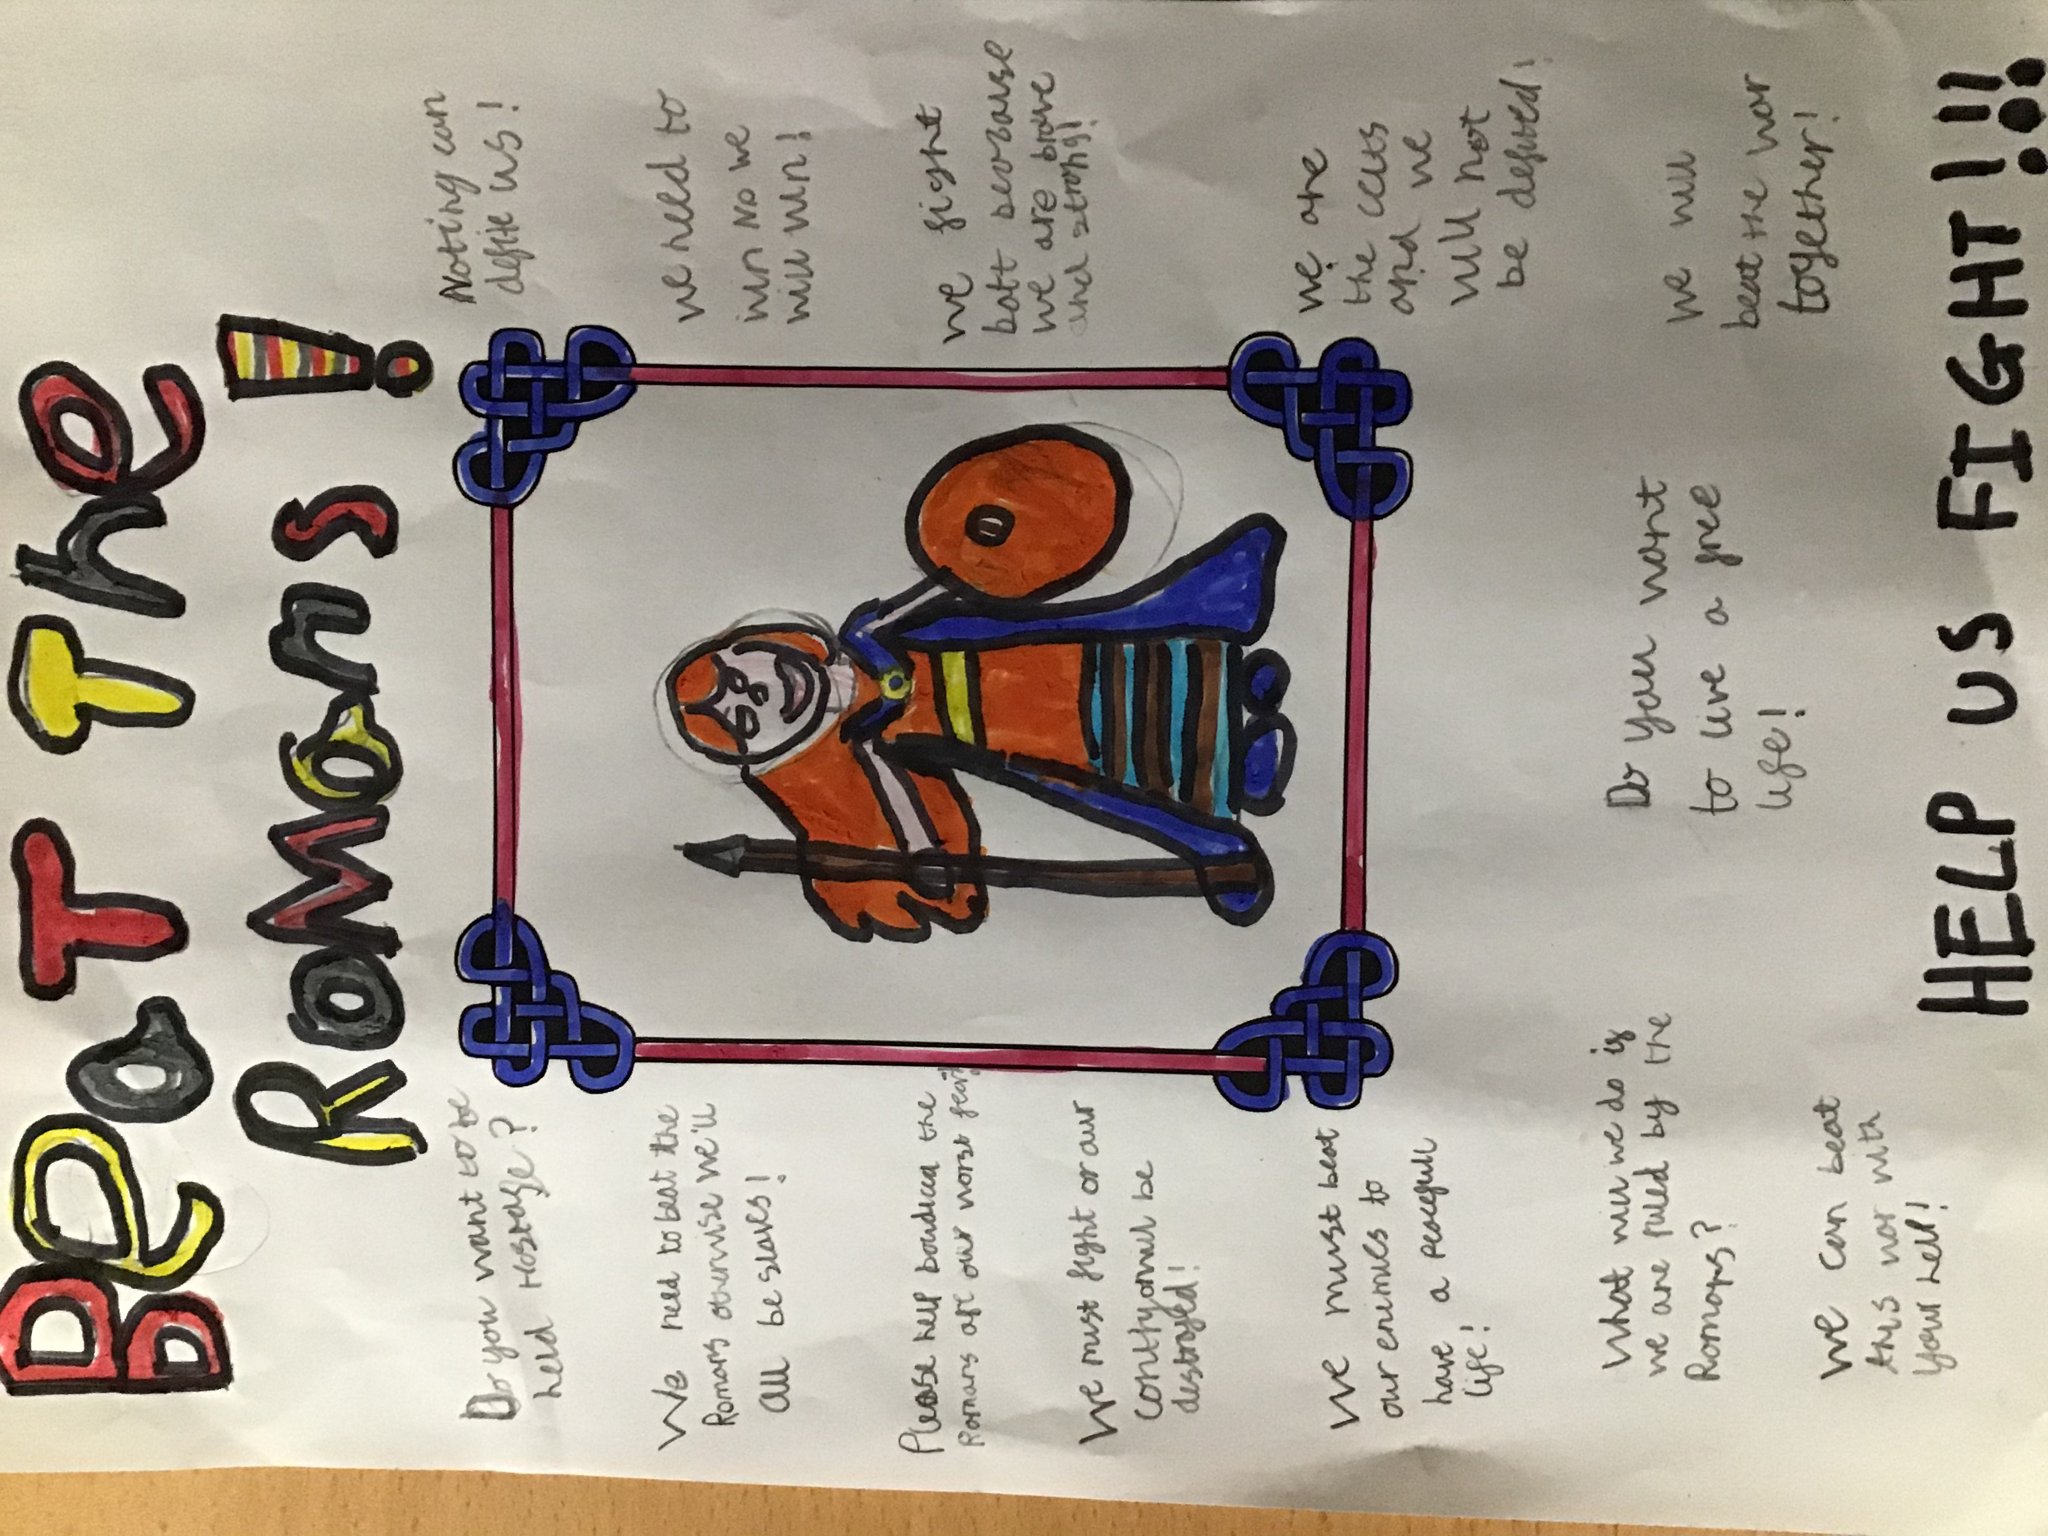 Beat The
Romans!
Do you want to be
held Hostage?
We need to beat the
Romans otherwise we'll
all be slaves!
Please help boudica the
Romans are our worse fear
We must fight or our
contry will be
destroyed!
We must beat
our enimies to
have a peacefull
life!
What will we do if
we are ruled by the
Romans?
We can beat
this war with
your help!
Do you want
to live a free
life!
Noting can
defite us!
We need to
win No we
will win!
We fight
batt because
we are brave
and strong!
We are
the celts
and we
will not
be defited!
We will
beat the war
together!
HELP US FIGHT!!!